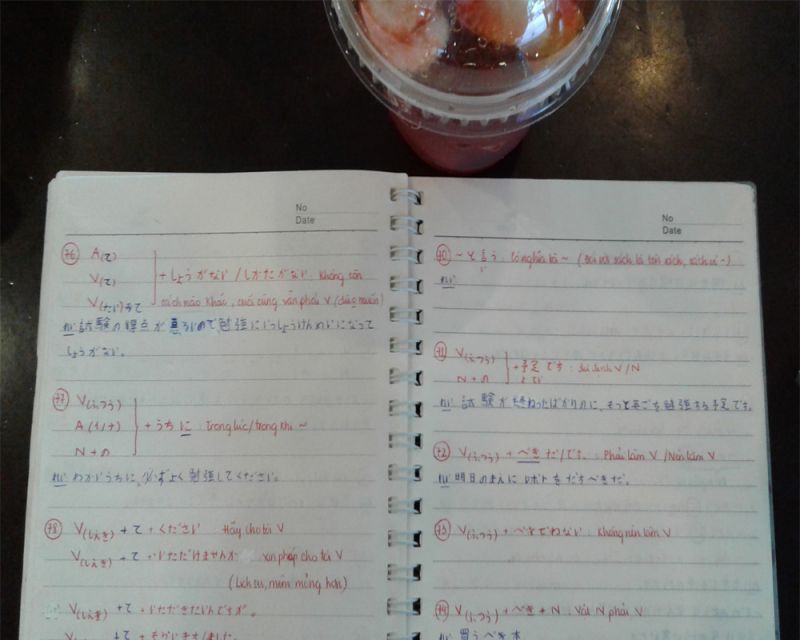 No
Date
76 A(て)
V(て) + しょうがない / しかたがない. Không còn
V(たい)くて cách nào khác, cuối cùng vẫn phải V (đúng muốn)
例 試験の得点が悪いので, 勉強にいっしょうけんめいになって
しょうがない。
77 V(ふつう)
A(い/な) + うちに : trong lúc/trong khi ~
N + の
例 わかいうちに, 必ずよく勉強してください。
78 V(しえき) + て + ください Hãy cho tôi V
V(しえき) + て + いただけませんか xin phép cho tôi V
(Lịch sự, mềm mỏng hơn)
V(しえき) + て + いただきたいんですが。
No
Date
~と言う Có nghĩa là ~
例
71 V(ふつう) + 予定です : dự định V/N
N + の よてい
例 試験が終わったばかりのに, もっと英ごを勉強する予定です。
72 V(ふつう) + べきだ/です. Phải làm V / Nên làm V
例 明日のまえにレポトをだすべきだ。
73 V(ふつう) + べきでわない Không nên làm V
74 V(ふつう) + べき + N : Với N phải V
例 買うべき本